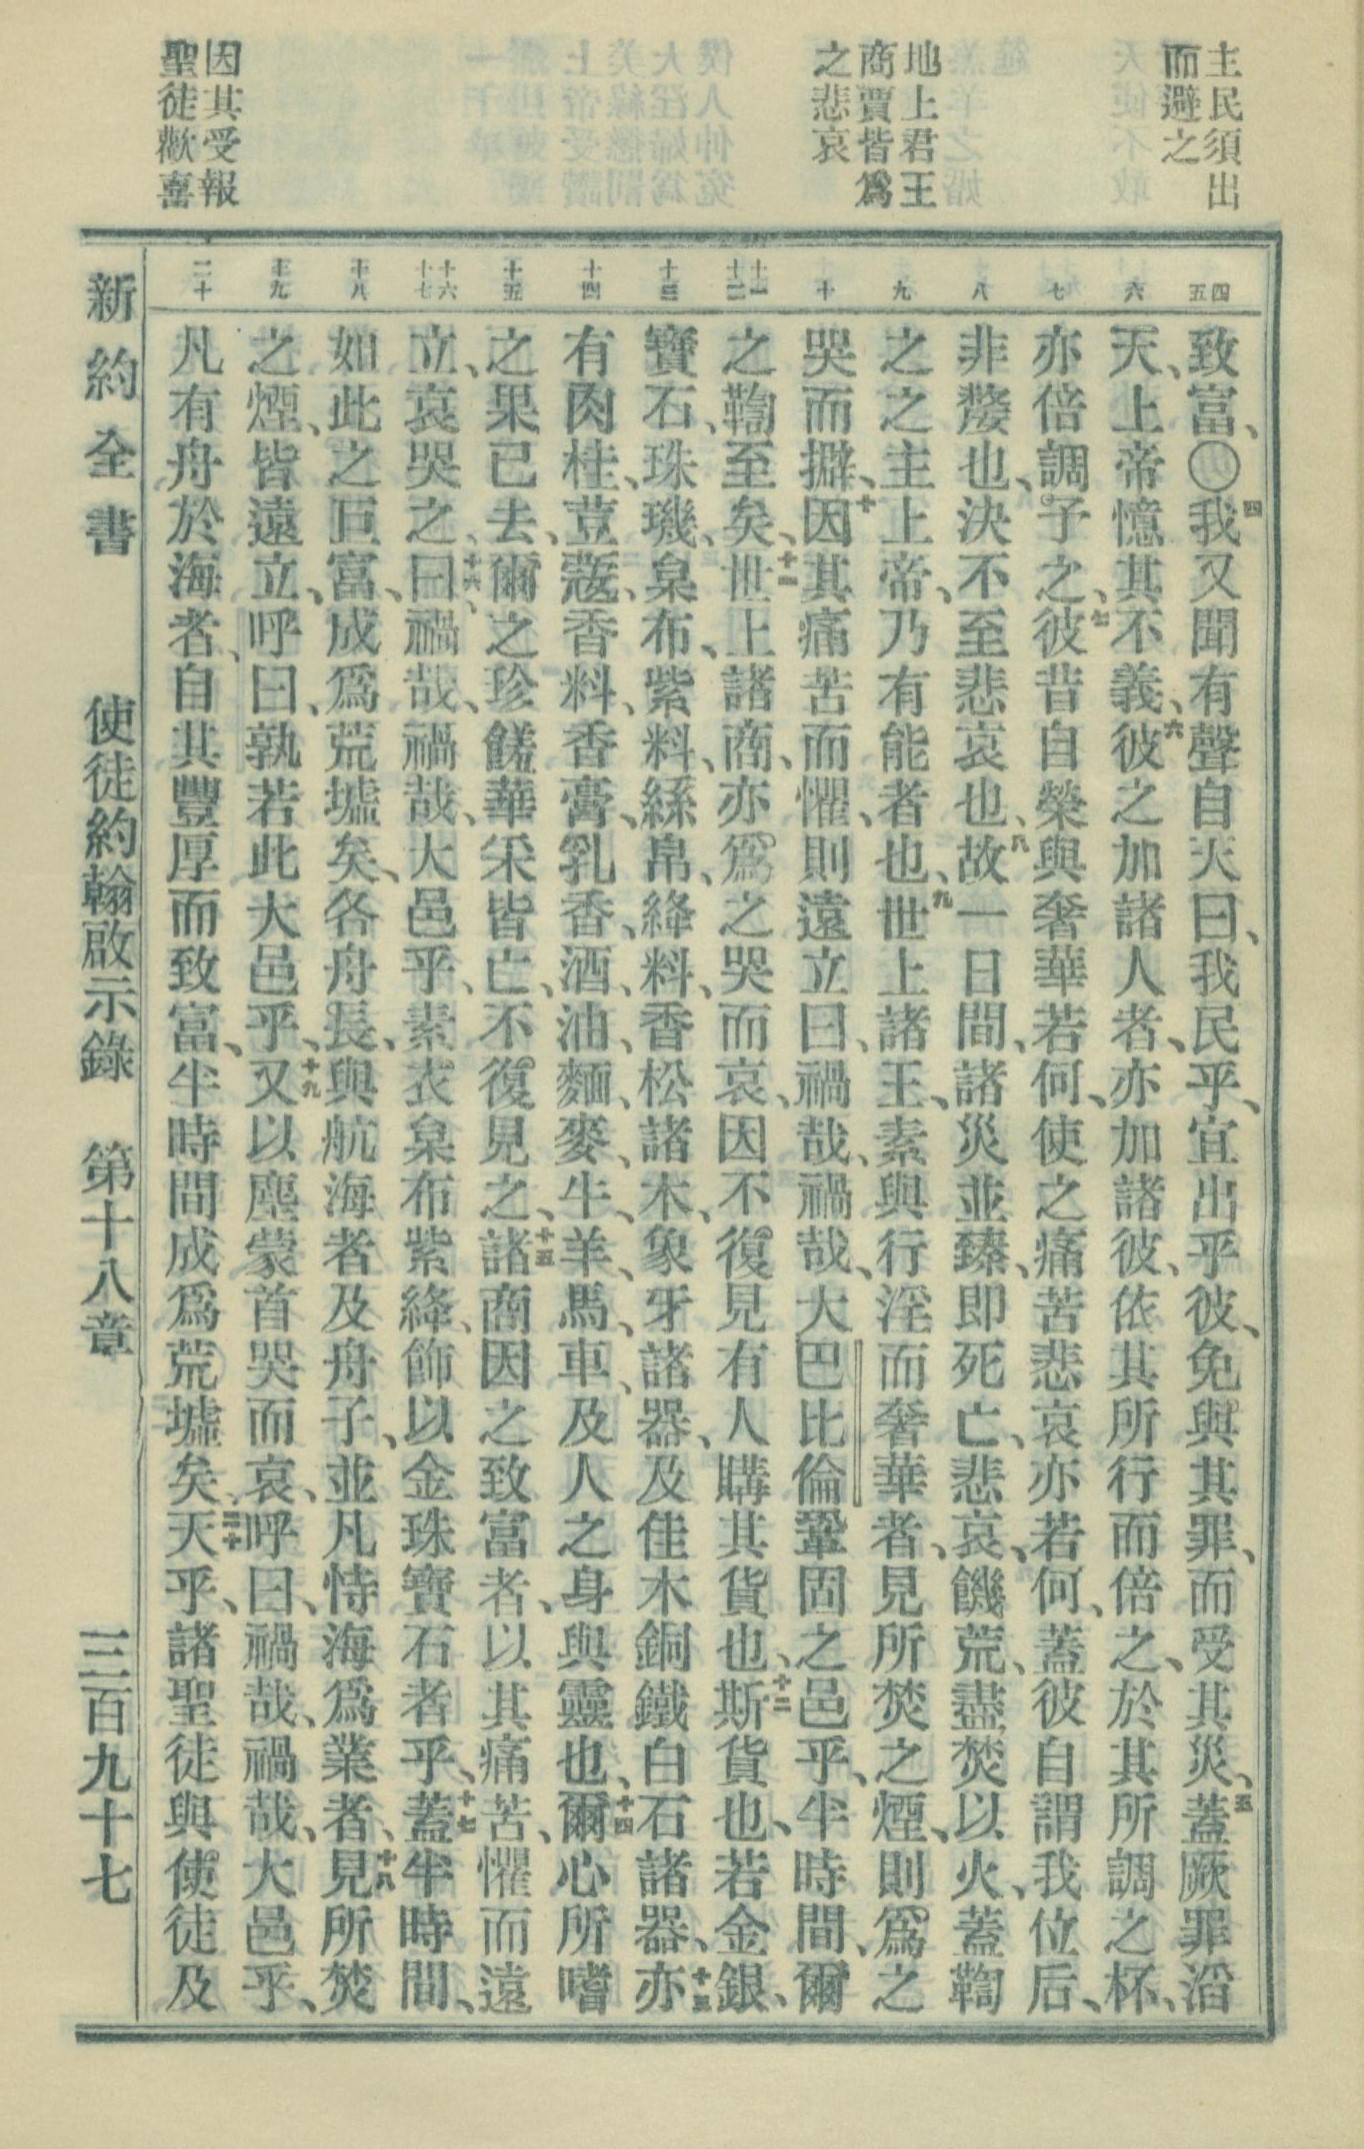 主民須出
而避之
地上君王
商賈皆爲
之悲哀
因其受報
聖徒歡喜
四
五
六
七
八
九
十
十一
十二
十三
十四
十五
十六
十七
十八
十九
二十
致富、〇四我又聞有聲自天曰、我民乎、宜出乎彼、免與其罪、而受其災、五蓋厥罪滔
天、上帝憶其不義、六彼之加諸人者、亦加諸彼、依其所行而倍之、於其所調之杯、
亦倍調予之、七彼昔自榮與奢華若何、使之痛苦悲哀亦若何、蓋彼自謂我位后、
非嫠也、決不至悲哀也、八故一日間、諸災並臻、即死亡、悲哀、饑荒、盡焚以火、蓋鞫
之之主上帝、乃有能者也、九世上諸王、素與行淫而奢華者、見所焚之煙、則爲之
哭而擗、十因其痛苦而懼、則遠立曰、禍哉、禍哉、大巴比倫鞏固之邑乎、半時間、爾
之鞫至矣、十一世上諸商、亦爲之哭而哀、因不復見有人購其貨也、十二斯貨也、若金銀、
寶石、珠璣、枲布、紫料、絲帛、絳料、香松諸木、象牙諸器、及佳木銅鐵白石諸器、十三亦
有肉桂、荳蔻、香料、香膏、乳香、酒、油、麵、麥、牛、羊、馬、車、及人之身與靈也、十四爾心所嗜
之果已去、爾之珍饈華采皆亡、不復見之、十五諸商因之致富者、以其痛苦、懼而遠
立、哀哭之、曰、十六禍哉、禍哉、大邑乎、素衣枲布紫絳、飾以金珠寶石者乎、十七蓋半時間、
如此之巨富、成爲荒墟矣、各舟長、與航海者及舟子、並凡恃海爲業者、十八見所焚
之煙、皆遠立、呼曰、孰若此大邑乎、十九又以塵蒙首哭而哀、呼曰、禍哉、禍哉、大邑乎、
凡有舟於海者、自其豐厚而致富、半時間成爲荒墟矣、二十天乎、諸聖徒與使徒及
新約全書　使徒約翰啟示錄　第十八章　三百九十七